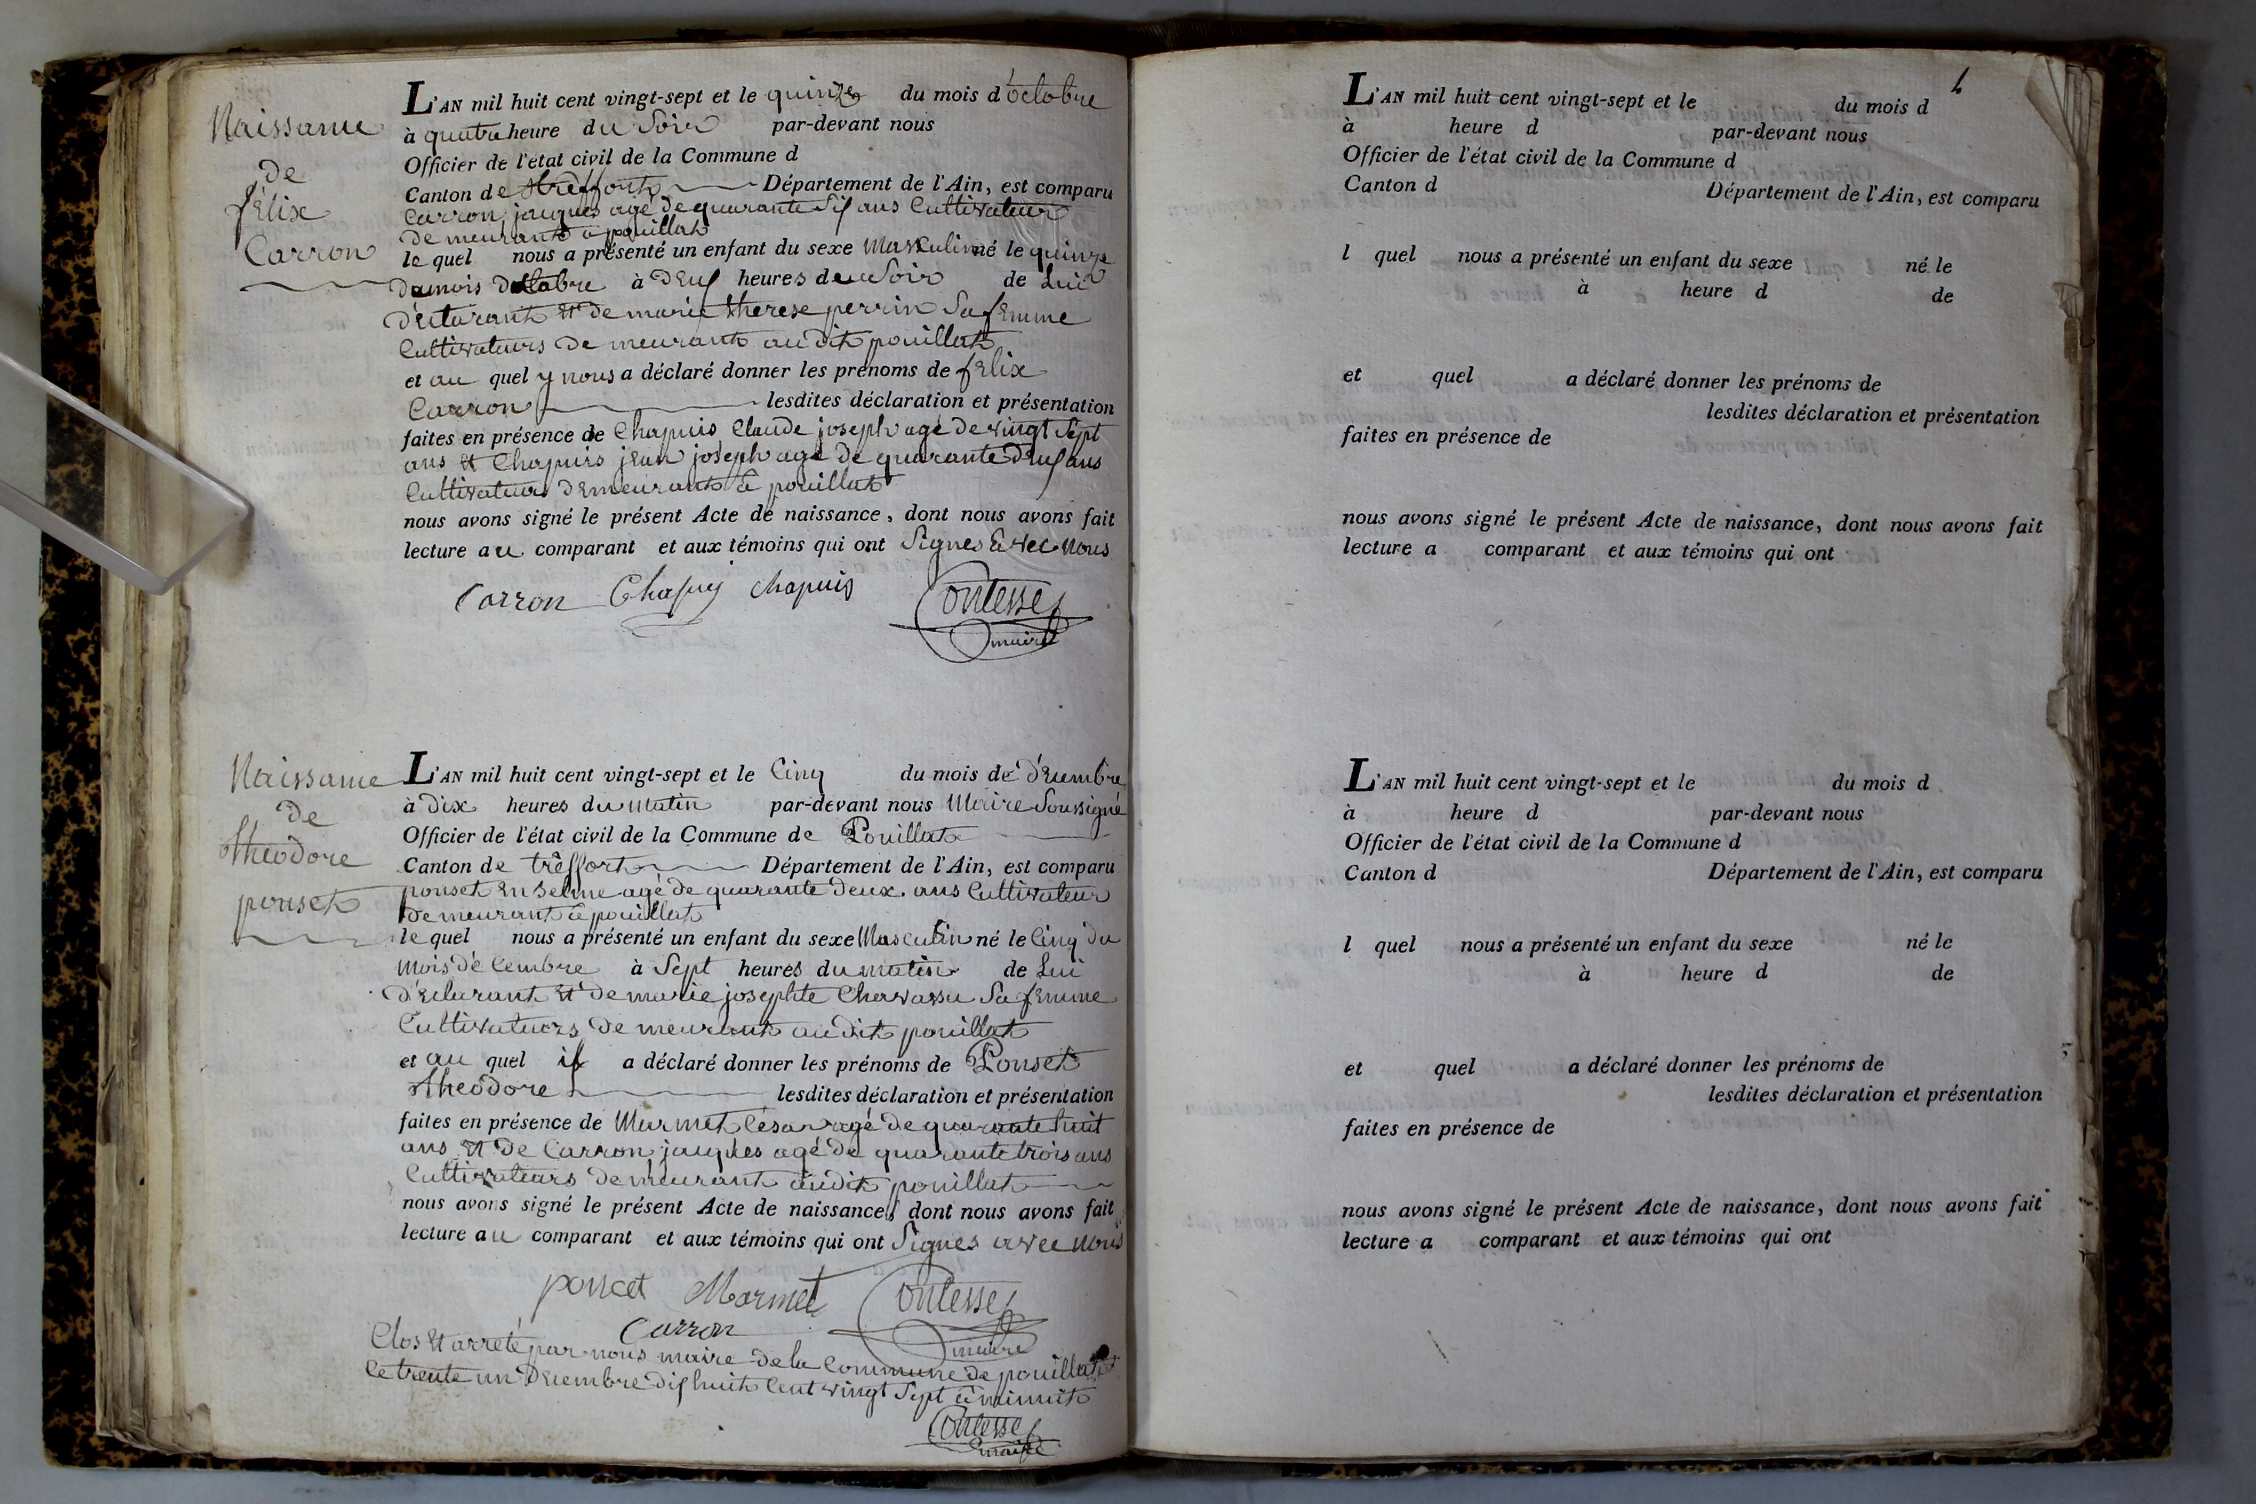 Naissance
de
félix
Carron
L'AN mil huit cent vingt-sept et le quinze du mois d'octobre
à quatre heure du Soir par-devant nous
Officier de l'état civil de la Commune d
Canton de treffort Département de l'Ain, est comparu
Carron jacques agé de quarante Six ans Cultivateur
de meurant à pouillat
le quel nous a présenté un enfant du sexe Masculin né le quinze
du mois d'octobre à deux heures du Soir de Lui
déclarant et de marie therese perrin Sa femme
Cultivateurs de meurant au dit pouillat
et au quel y nous a déclaré donner les prénoms de félix
Carron lesdites déclaration et présentation
faites en présence de Chapuis Claude joseph agé de vingt Sept
ans et Chapuis jean joseph agé de quarante deux ans
Cultivateurs demeurant à pouillat
nous avons signé le présent Acte de naissance, dont nous avons fait
lecture au comparant et aux témoins qui ont Signés avec nous
Carron Chapuy chapuis Contesse
maire
Naissance
de
théodore
ponset
L'AN mil huit cent vingt-sept et le Cinq du mois de décembre
à dix heures du matin par-devant nous Maire Soussigné
Officier de l'état civil de la Commune de Pouillat
Canton de treffort Département de l'Ain, est comparu
ponset enselme agé de quarante deux ans Cultivateur
demeurant à pouillat
le quel nous a présenté un enfant du sexe Masculin né le Cinq du
mois décembre à Sept heures du matin de Lui
déclarant et de marie josephte Chavassu Sa femme
Cultivateurs de meurant au dit pouillat
et au quel il a déclaré donner les prénoms de Ponset
théodore lesdites déclaration et présentation
faites en présence de Marmet César agé de quarante huit
ans et de Carron jacques agé de quarante trois ans
Cultivateurs demeurant audit pouillat
nous avons signé le présent Acte de naissance, dont nous avons fait
lecture au comparant et aux témoins qui ont Signés avec nous
poncet Marmet Contesse
Carron maire
Clos et arreté par nous maire de la Commune de pouillat
le trente un décembre dix huit Cent vingt Sept à minuit
Contesse
maire
L'AN mil huit cent vingt-sept et le du mois d
à heure d par-devant nous
Officier de l'état civil de la Commune d
Canton d Département de l'Ain, est comparu
l quel nous a présenté un enfant du sexe né le
à heure d de
et quel a déclaré donner les prénoms de
lesdites déclaration et présentation
faites en présence de
nous avons signé le présent Acte de naissance, dont nous avons fait
lecture a comparant et aux témoins qui ont
L'AN mil huit cent vingt-sept et le du mois d
à heure d par-devant nous
Officier de l'état civil de la Commune d
Canton d Département de l'Ain, est comparu
l quel nous a présenté un enfant du sexe né le
à heure d de
et quel a déclaré donner les prénoms de
lesdites déclaration et présentation
faites en présence de
nous avons signé le présent Acte de naissance, dont nous avons fait
lecture a comparant et aux témoins qui ont